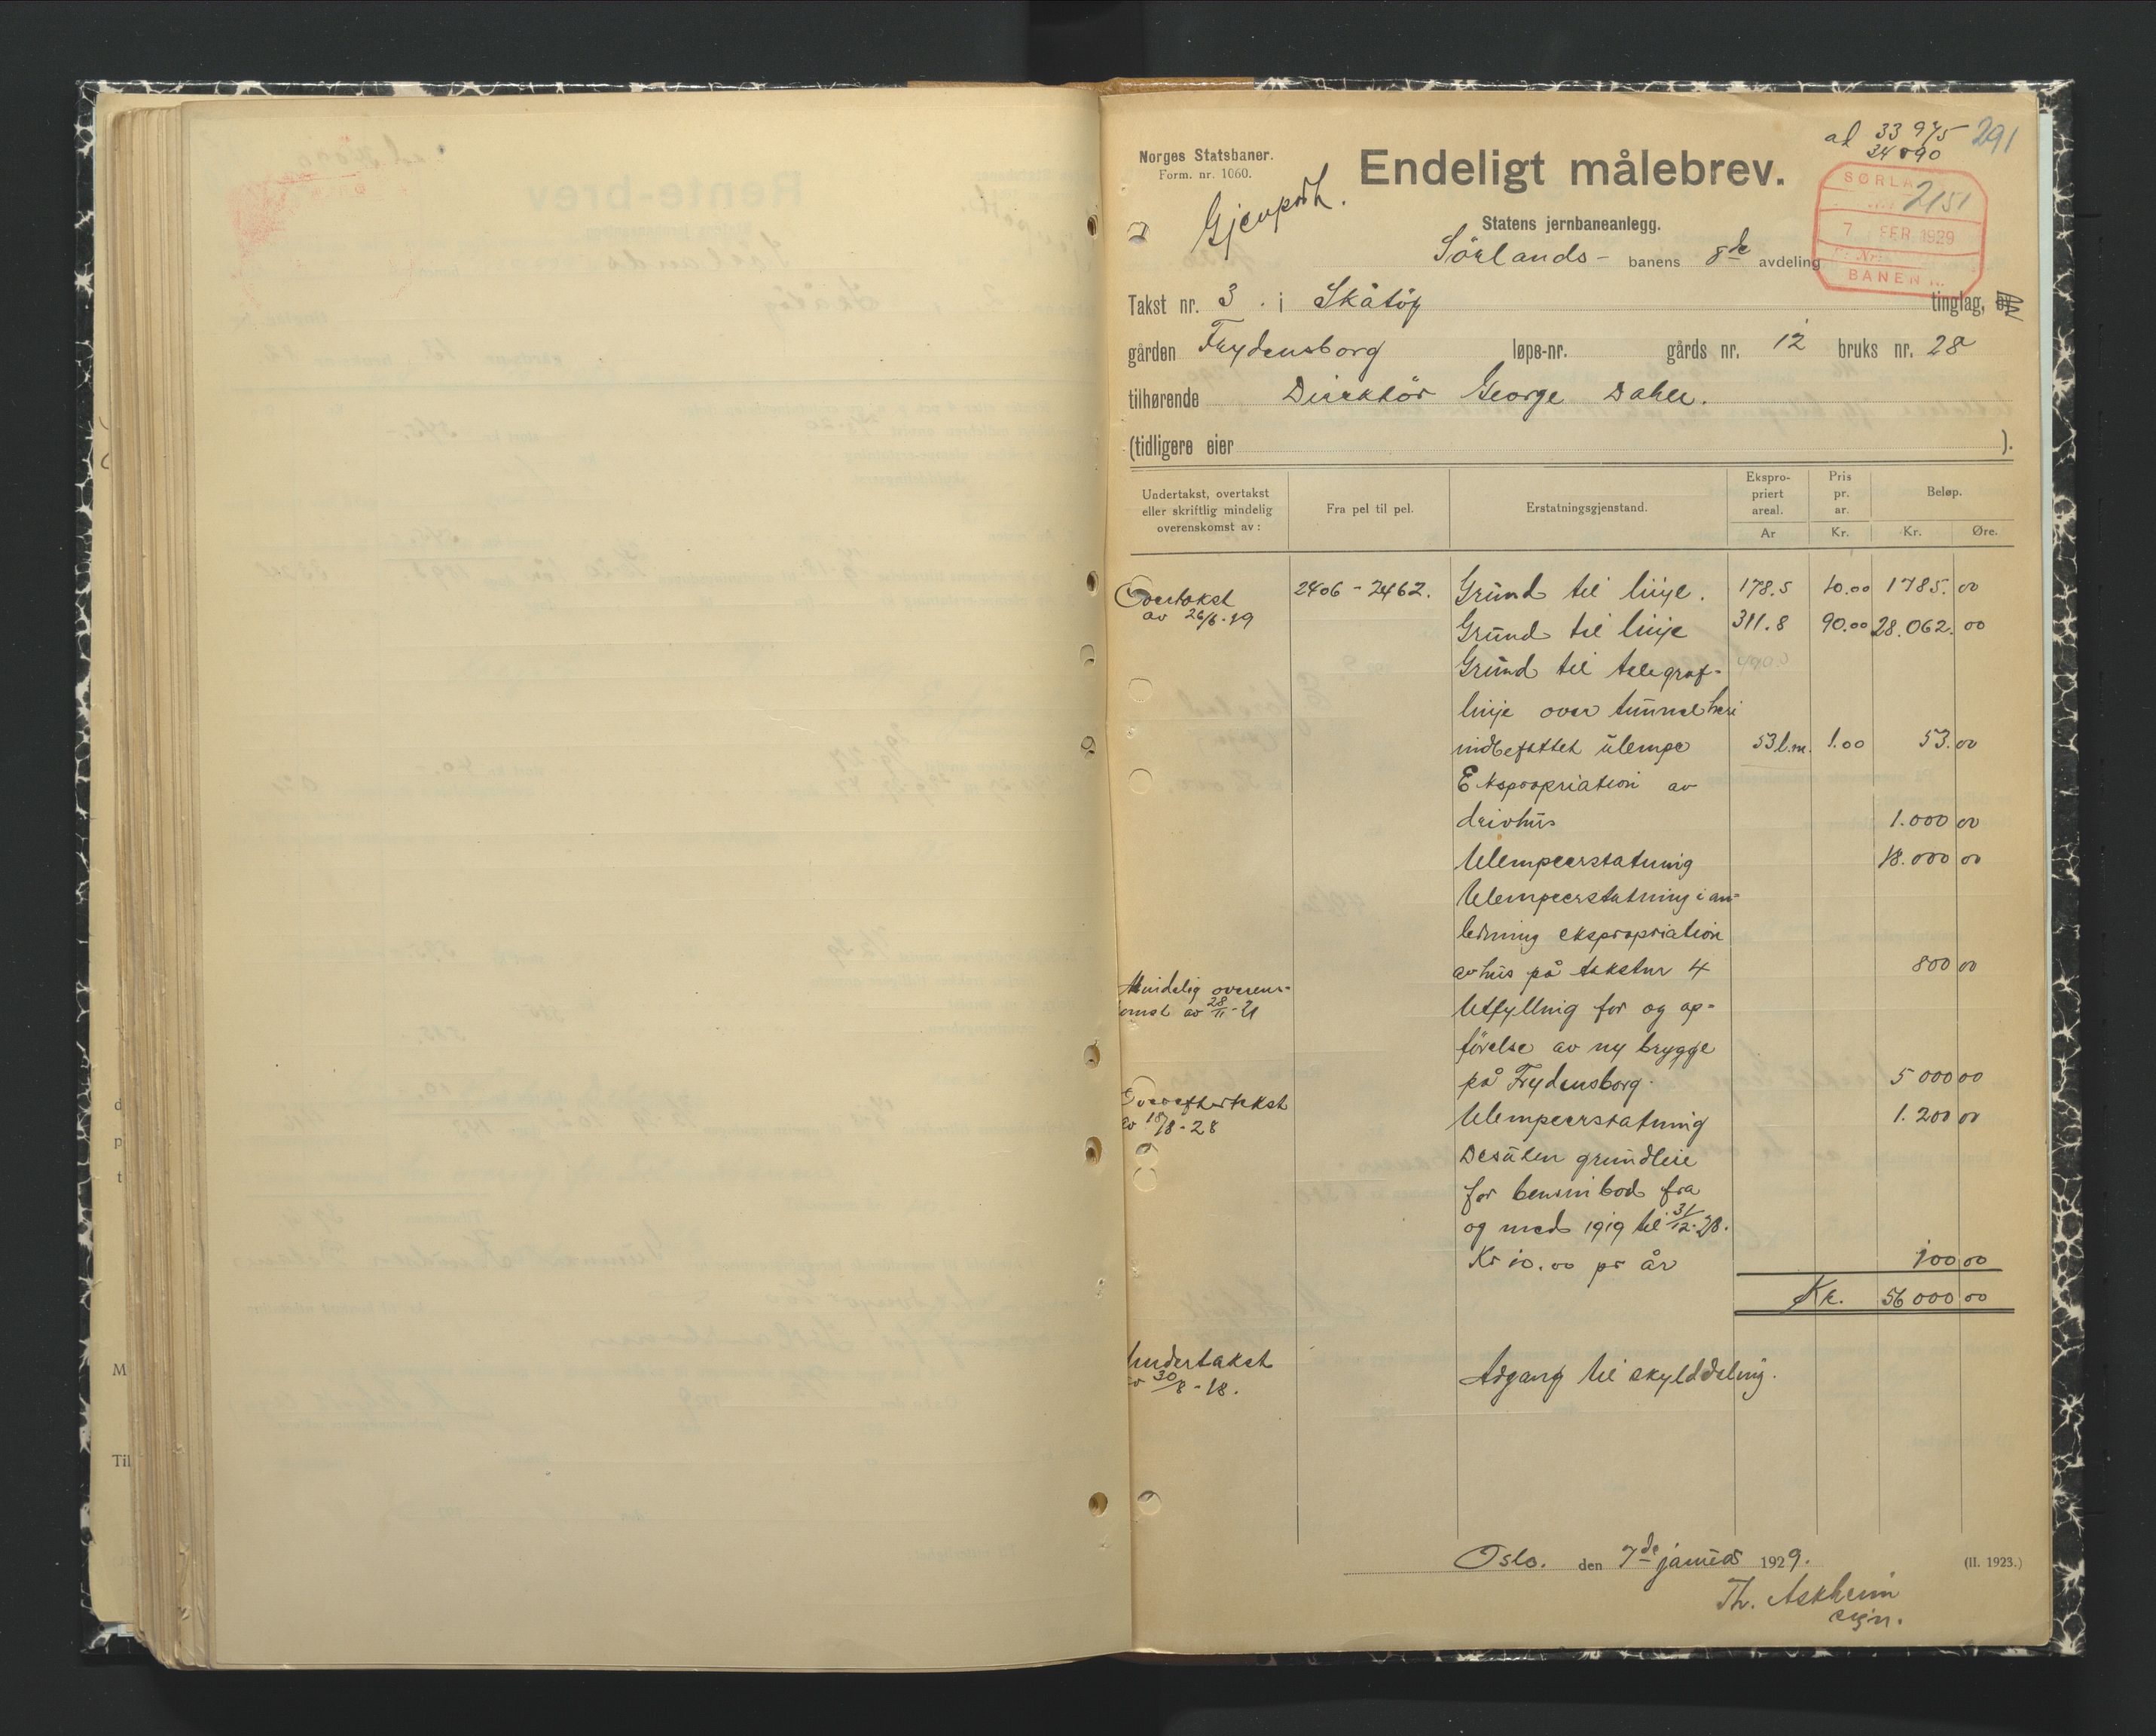 al 33 975 291
34890
Norges Statsbaner.
Form. nr. 1060.
Endeligt målebrev.
Gjenpart.
SØRLA
2151
7 FEB. 1929
Nr.
BANEN
Statens jernbaneanlegg.
Sørlands- banens 8de avdeling
Takst nr. 3. i Skåtøy tinglag, by
gården Frydensborg løpe-nr. gårds nr. 12 bruks nr. 28
tilhørende Direktör George Dahll.
(tidligere eier ).
Undertakst, overtakst eller skriftlig mindelig overenskomst av: Fra pel til pel. Erstatningsgjenstand. Ekspro-priert areal. Pris pr. ar. Beløp.
Ar Kr. Kr. Øre.
Overtakst 2406 - 2462. Grund til linje. 178.5 10.00 1785. 00
av 26/6-19 Grund til linje 311.8 90.00 28.062. 00
Grund til telegraf- 490.3
linje over tunnel heri
indbefattet ulempe 53 l.m. 1.00 53. 00
Ekspropriation av
drivhus 1.000 00
Ulempeerstatning 18.000 00
Ulempeerstatning i an-
ledning ekspropriation
av hus på takstnr 4 800 00
Mindelig overens-
komst av 28/11-21 Utfylling for og op-
førelse av ny brygge
på Frydensborg. 5 000 00
Overeftertakst
av 18/8-28 Ulempeerstatning 1.200 00
Desuten grundleie
for bensinbod fra
og med 1919 til 31/12-28.
Kr 10.00 pr år 100 00
Kr. 56 000 00
Undertakst
av 30/8-18. Adgang til skylddeling.
Oslo. den 7de januar 1929. (II. 1923.)
Th. Askheim
sign.